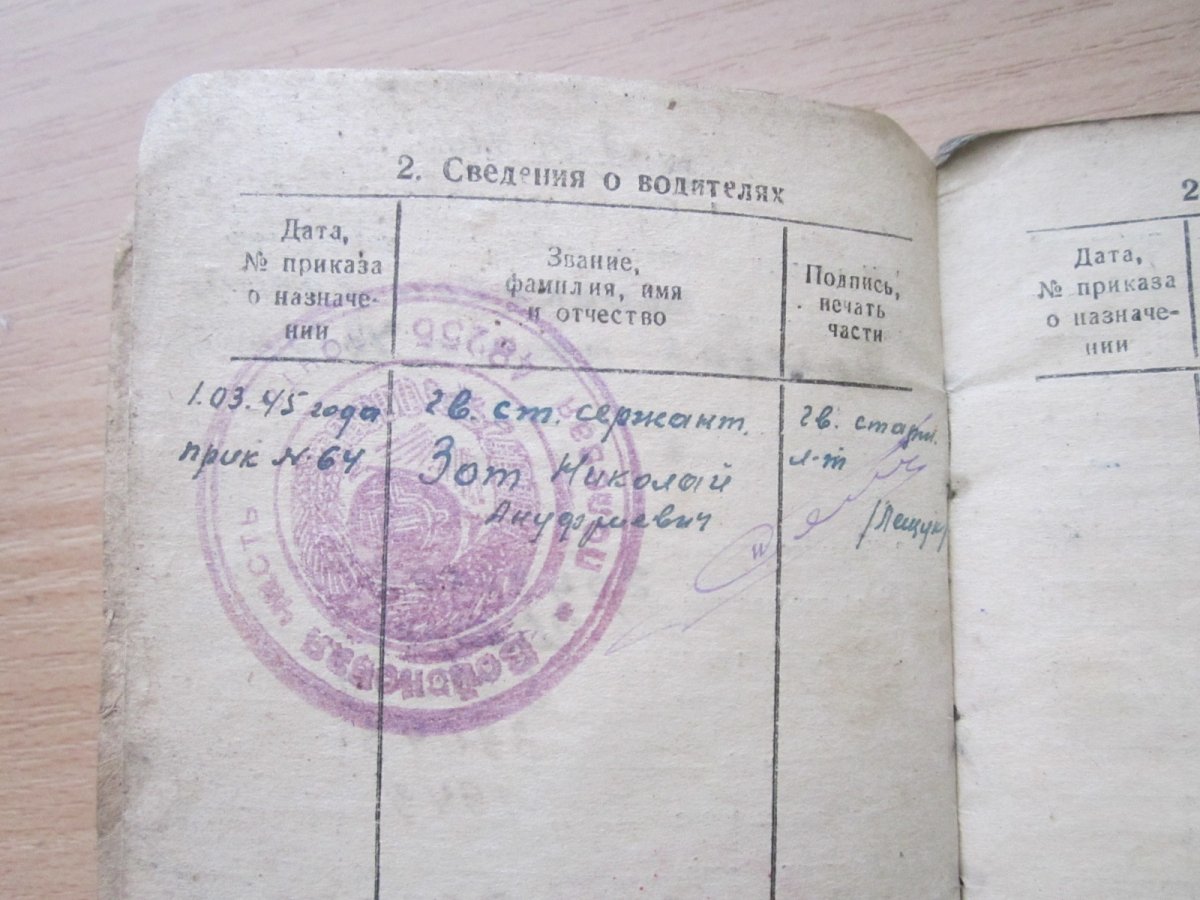 2. Сведения о водителях
Дата,
№ приказа
о назначе-
нии
Звание,
фамилия, имя
и отчество
Подпись,
печать
части
1.03.45 года
прик № 64
гв. ст. сержант.
Зот Николай
Ануфриевич
гв. старш.
л-т
/Лещук/
Войсковая часть
48255
2
Дата,
№ приказа
о назначе-
нии